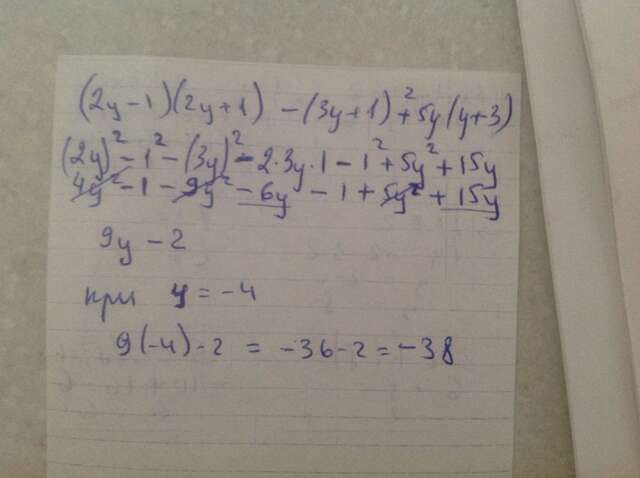 (2y-1)(2y+1) -(3y+1)²+5y(y+3)
(2y)²-1²-(3y)²-2·3y·1-1²+5y²+15y
4y²-1-9y²-6y-1+5y²+15y
9y-2
при y=-4
9(-4)-2 = -36-2=-38